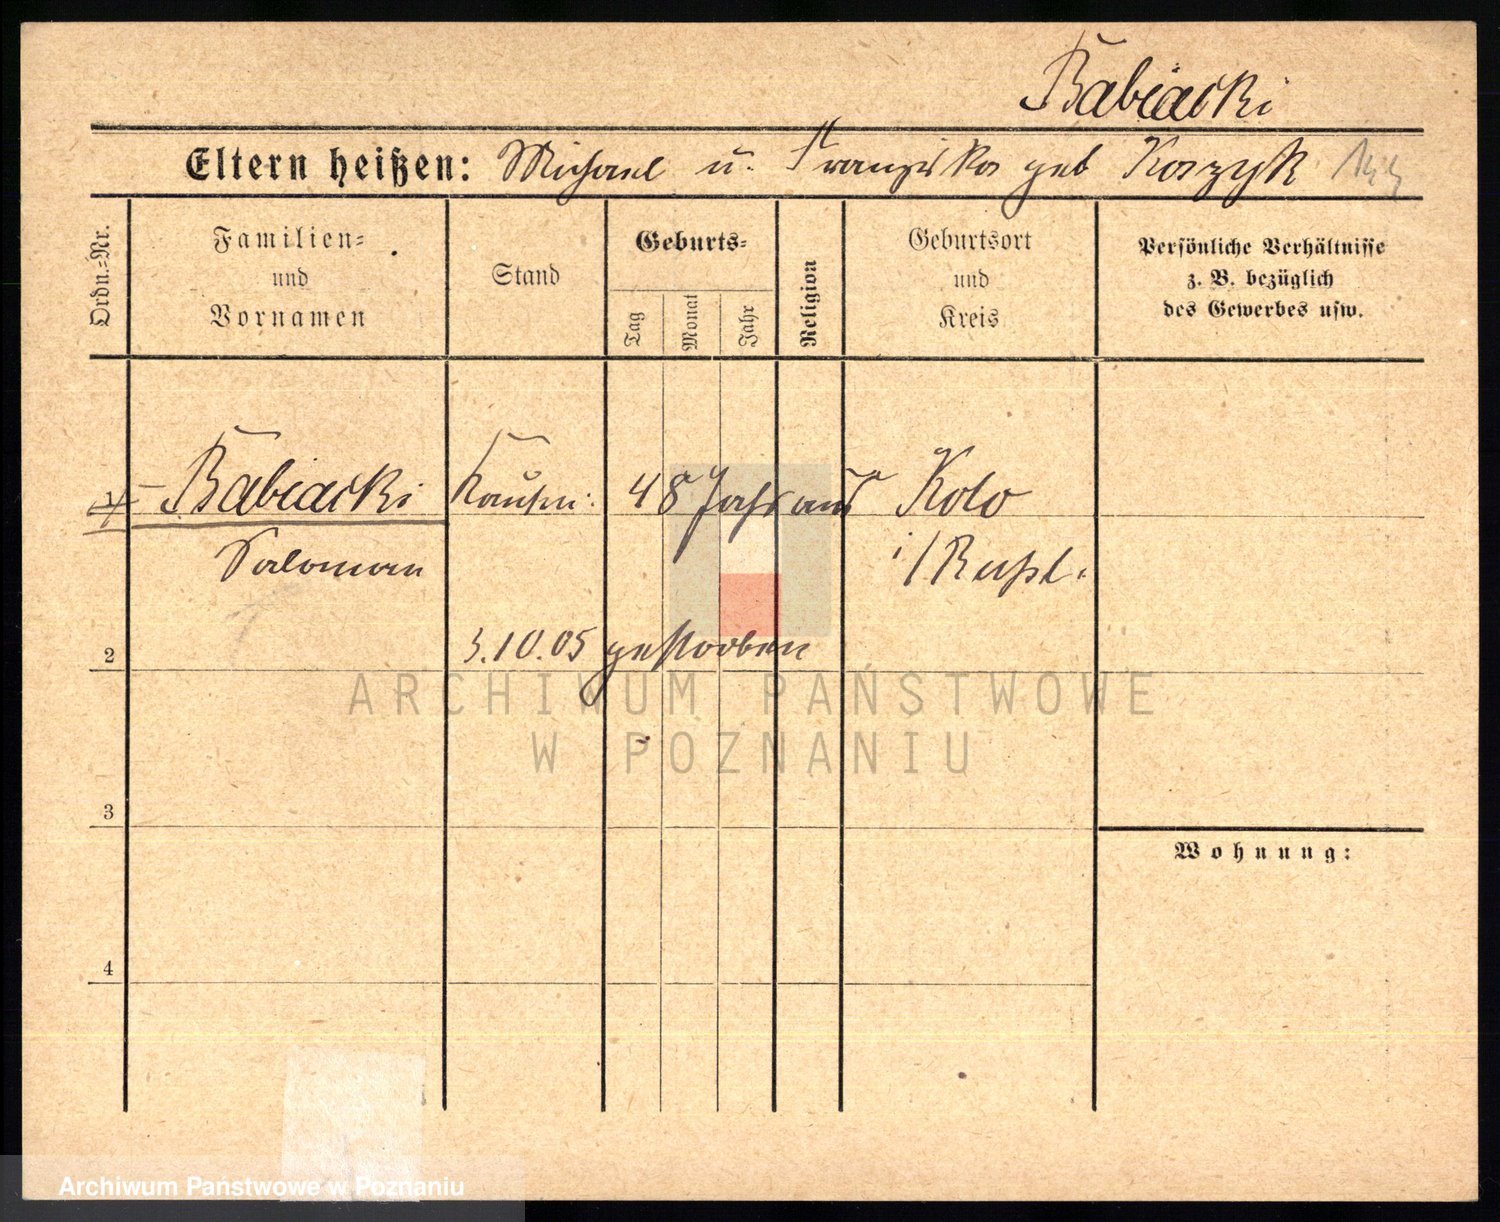 Babiacki
Eltern heißen: Michael u. Franziska geb Koszyk 144
Ordn.=Nr.
Familien=
und
Vornamen
Stand
Geburts=
Tag
Monat
Jahr
Religion
Geburtsort
und
Kreis
Persönliche Verhältnisse
z. B. bezüglich
des Gewerbes usw.
1 Babiacki Kaufm: 48 Jahr aus Kolo
Salomon i/Rußl.
2 3.10.05 gestorben
ARCHIWUM PAŃSTWOWE
W POZNANIU
3
Wohnung:
4
Archiwum Państwowe w Poznaniu